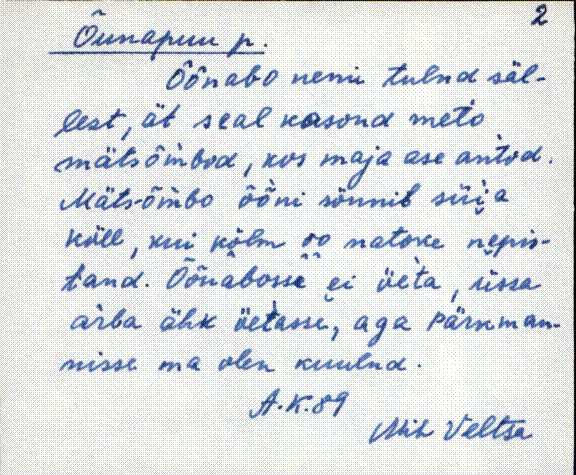 2
Õunapuu p.
Õõnabo nemi tulnd säl-
lest, ät seal kasond meto
mätsõ̀mbod, kos maja ase antod.
Mäts-õ̀mbo õõni sönnib süia
köll, kui kölm oo natoke nepis-
tand. Õõnabosse ei öeta, üssa
àrba ähk öetasse, aga Pärkman-
nisse ma olen kuulnd.
A.K.89
Mih Veltsa